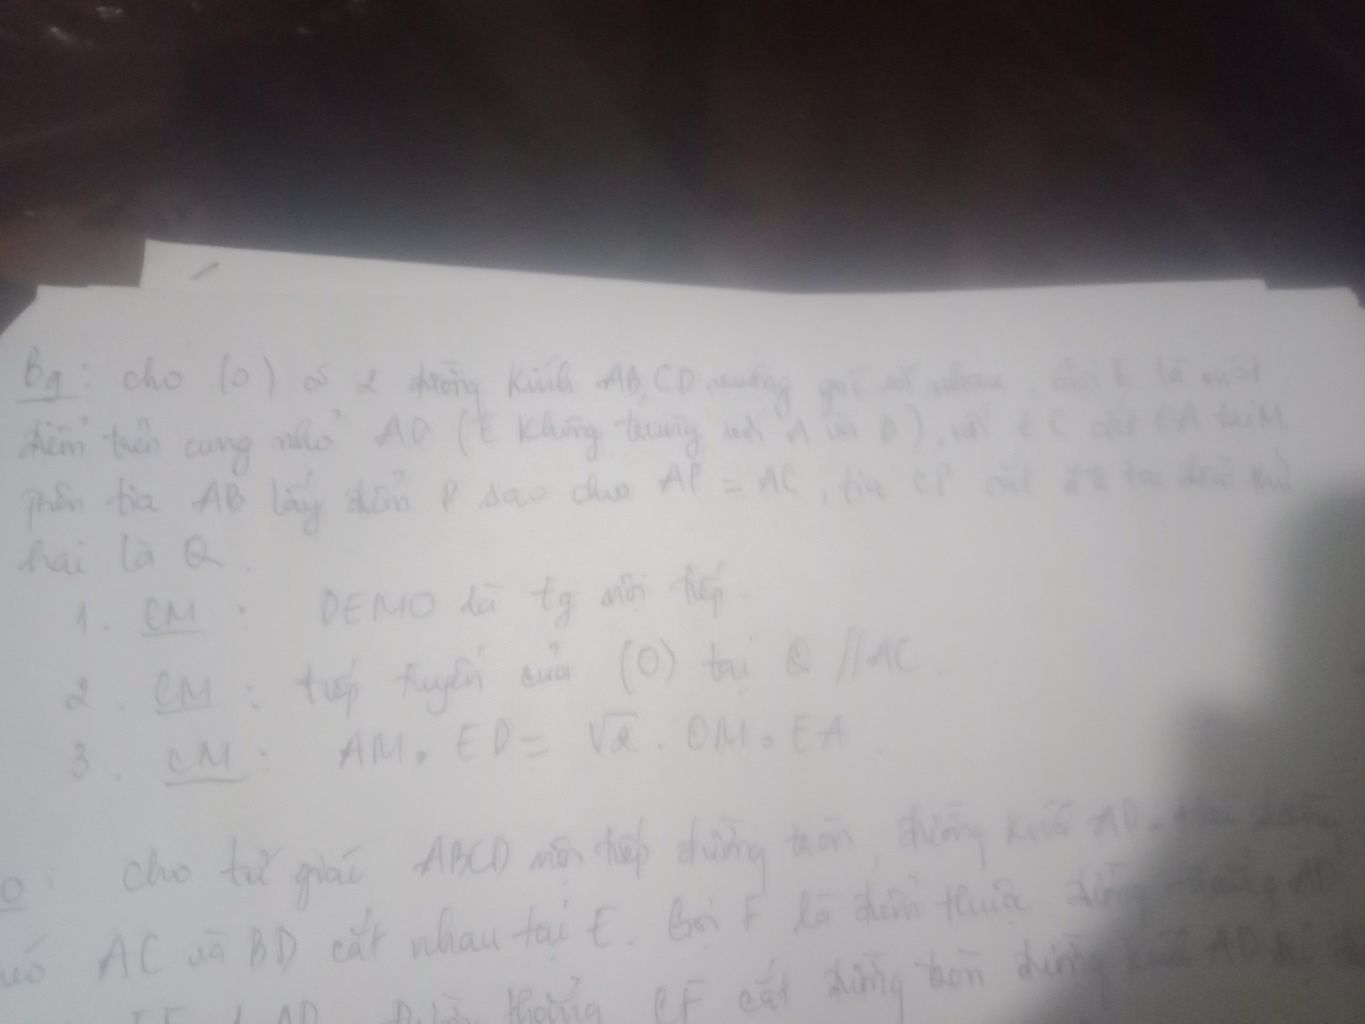 B9: cho (O) có 2 đường kính AB, CD vuông góc với nhau. Gọi E là một
điểm trên cung nhỏ AD (E không trùng với A và D), nối EC cắt OA tại M
trên tia AB lấy điểm P sao cho AP = AC, tia CP cắt điểm thứ
hai là Q.
1. CM: DEMO là tg nội tiếp.
2. CM: tiếp tuyến của (O) tại Q // AC.
3. CM: AM. ED = √2. OM. EA.
cho tứ giác ABCD nội tiếp đường tròn, đường kính AD. đường
AC và BD cắt nhau tại E. Gọi F là điểm thuộc đường thẳng AD
EF ⊥ AD. Đường thẳng CF cắt đường tròn đường kính AD